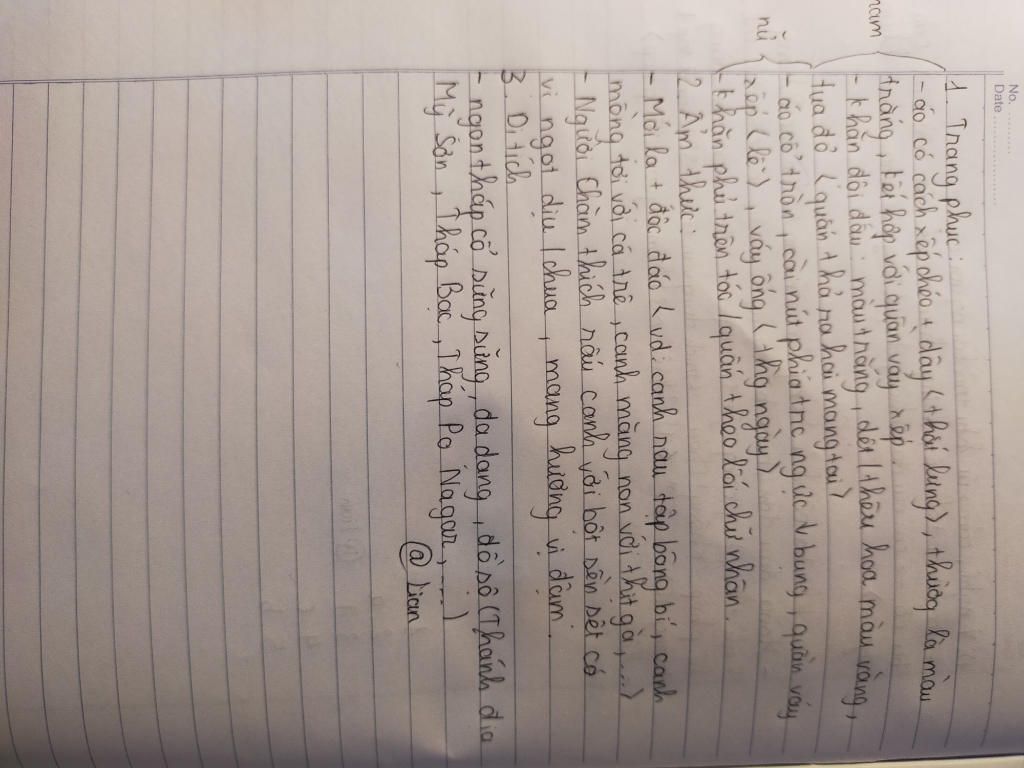 No.
Date
1. Trang phục:
nam
- áo có cách xếp chéo + dây (thắt lưng), thường là màu
trắng, kết hợp với quần váy xếp
- khăn đội đầu: màu trắng, dệt / thêu hoa màu vàng,
tua đỏ (quấn thả ra hai mang tai)
nữ
- áo cổ tròn, cài nút phía trc ngực & bụng, quần váy
xếp (lễ), váy ống (thg ngày)
- khăn phủ trên tóc / quấn theo lối chữ nhân.
2. Ẩm thực:
- Mới lạ + độc đáo (vd: canh rau tập bông bí, canh
mồng tơi với cá trê, canh măng non với thịt gà,...)
- Người Chăm thích nấu canh với bột sền sệt có
vị ngọt dịu / chua, mang hương vị đậm.
3. Di tích
- ngọn tháp cổ sừng sững, đa dạng, đồ sộ (Thánh địa
Mỹ Sơn, Tháp Bạc, Tháp Po Nagar, ....)
@ Dian